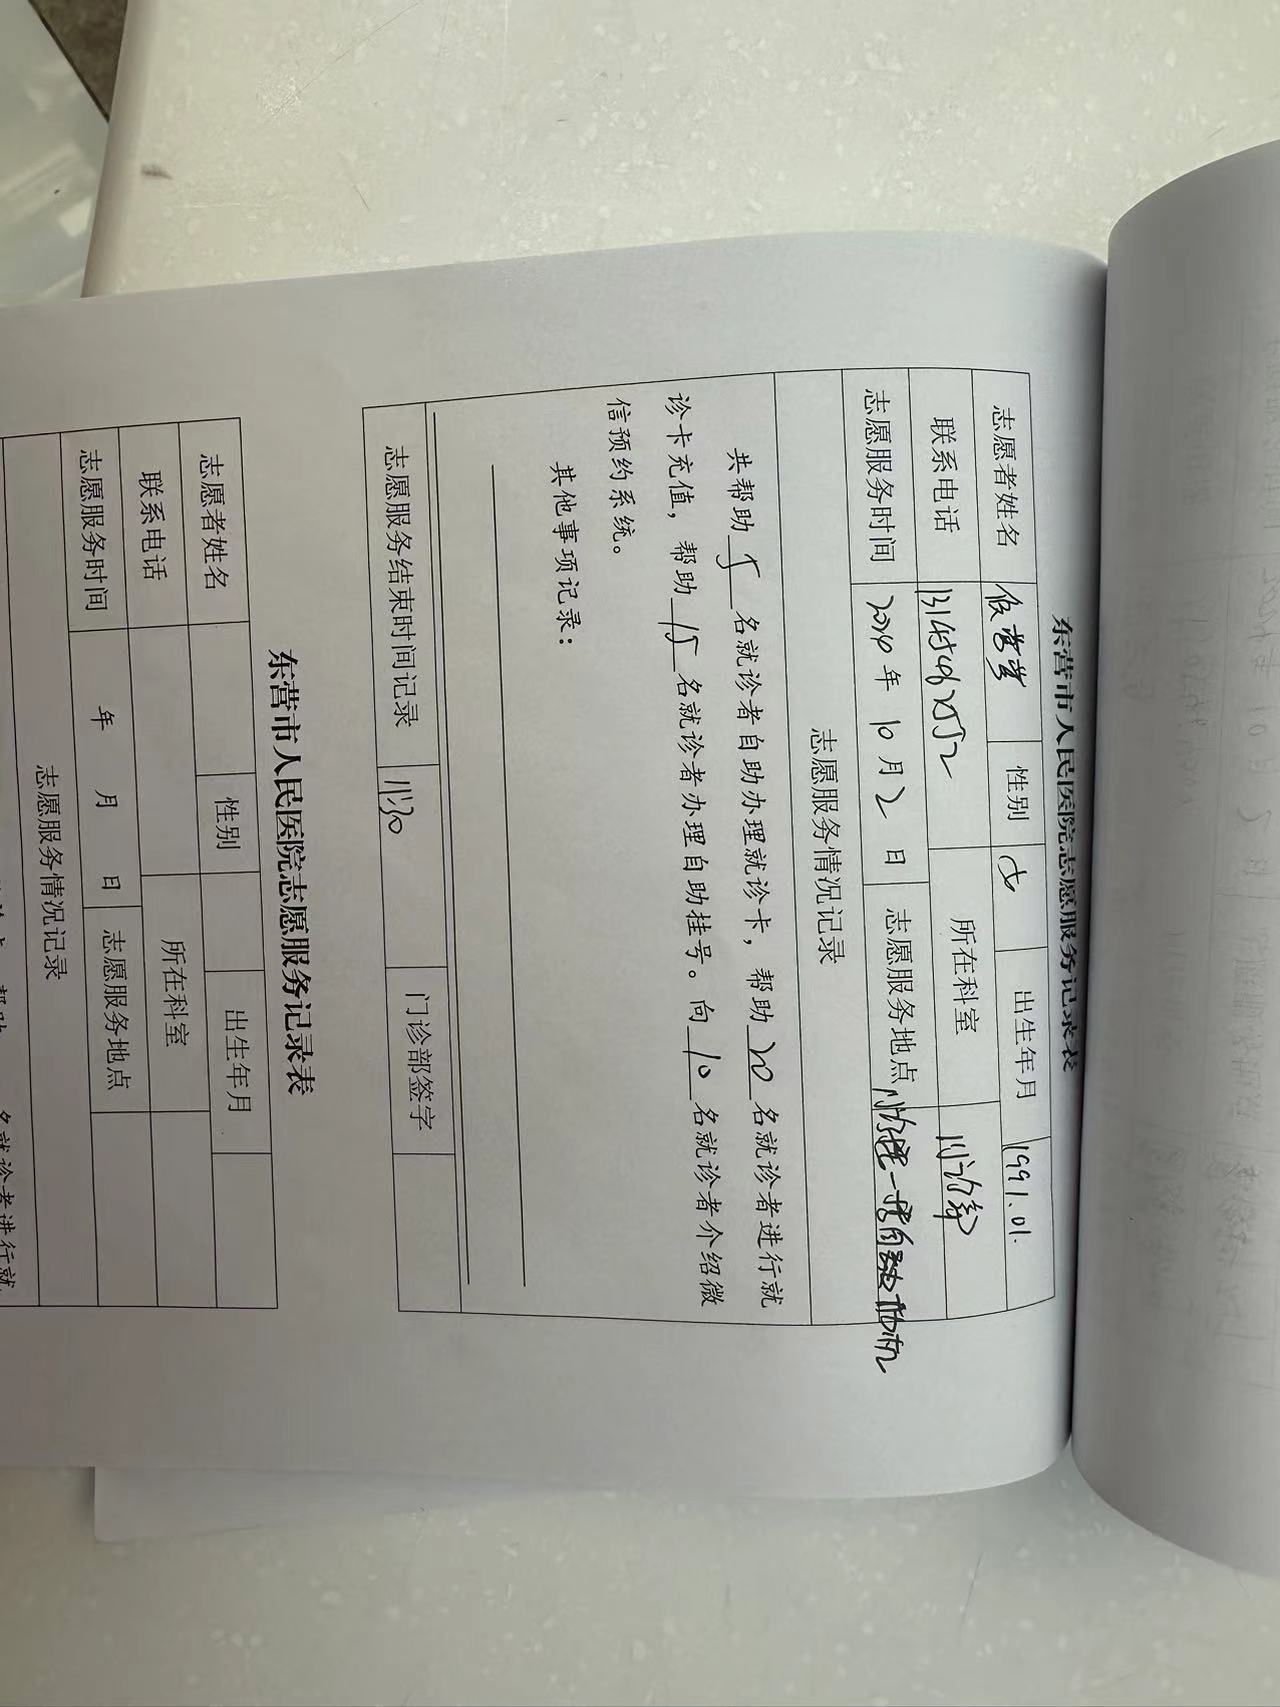 东营市人民医院志愿服务记录表
志愿者姓名 性别 女 出生年月 1991.01.
联系电话 所在科室 门诊部
志愿服务时间 2024年 10月 2日 志愿服务地点
志愿服务情况记录
共帮助 5 名就诊者自助办理就诊卡，帮助 20 名就诊者进行就
诊卡充值，帮助 15 名就诊者办理自助挂号。向 10 名就诊者介绍微
信预约系统。
其他事项记录：
志愿服务结束时间记录 11:30 门诊部签字
东营市人民医院志愿服务记录表
志愿者姓名 性别 出生年月
联系电话 所在科室
志愿服务时间 年 月 日 志愿服务地点
志愿服务情况记录
名就诊者进行就